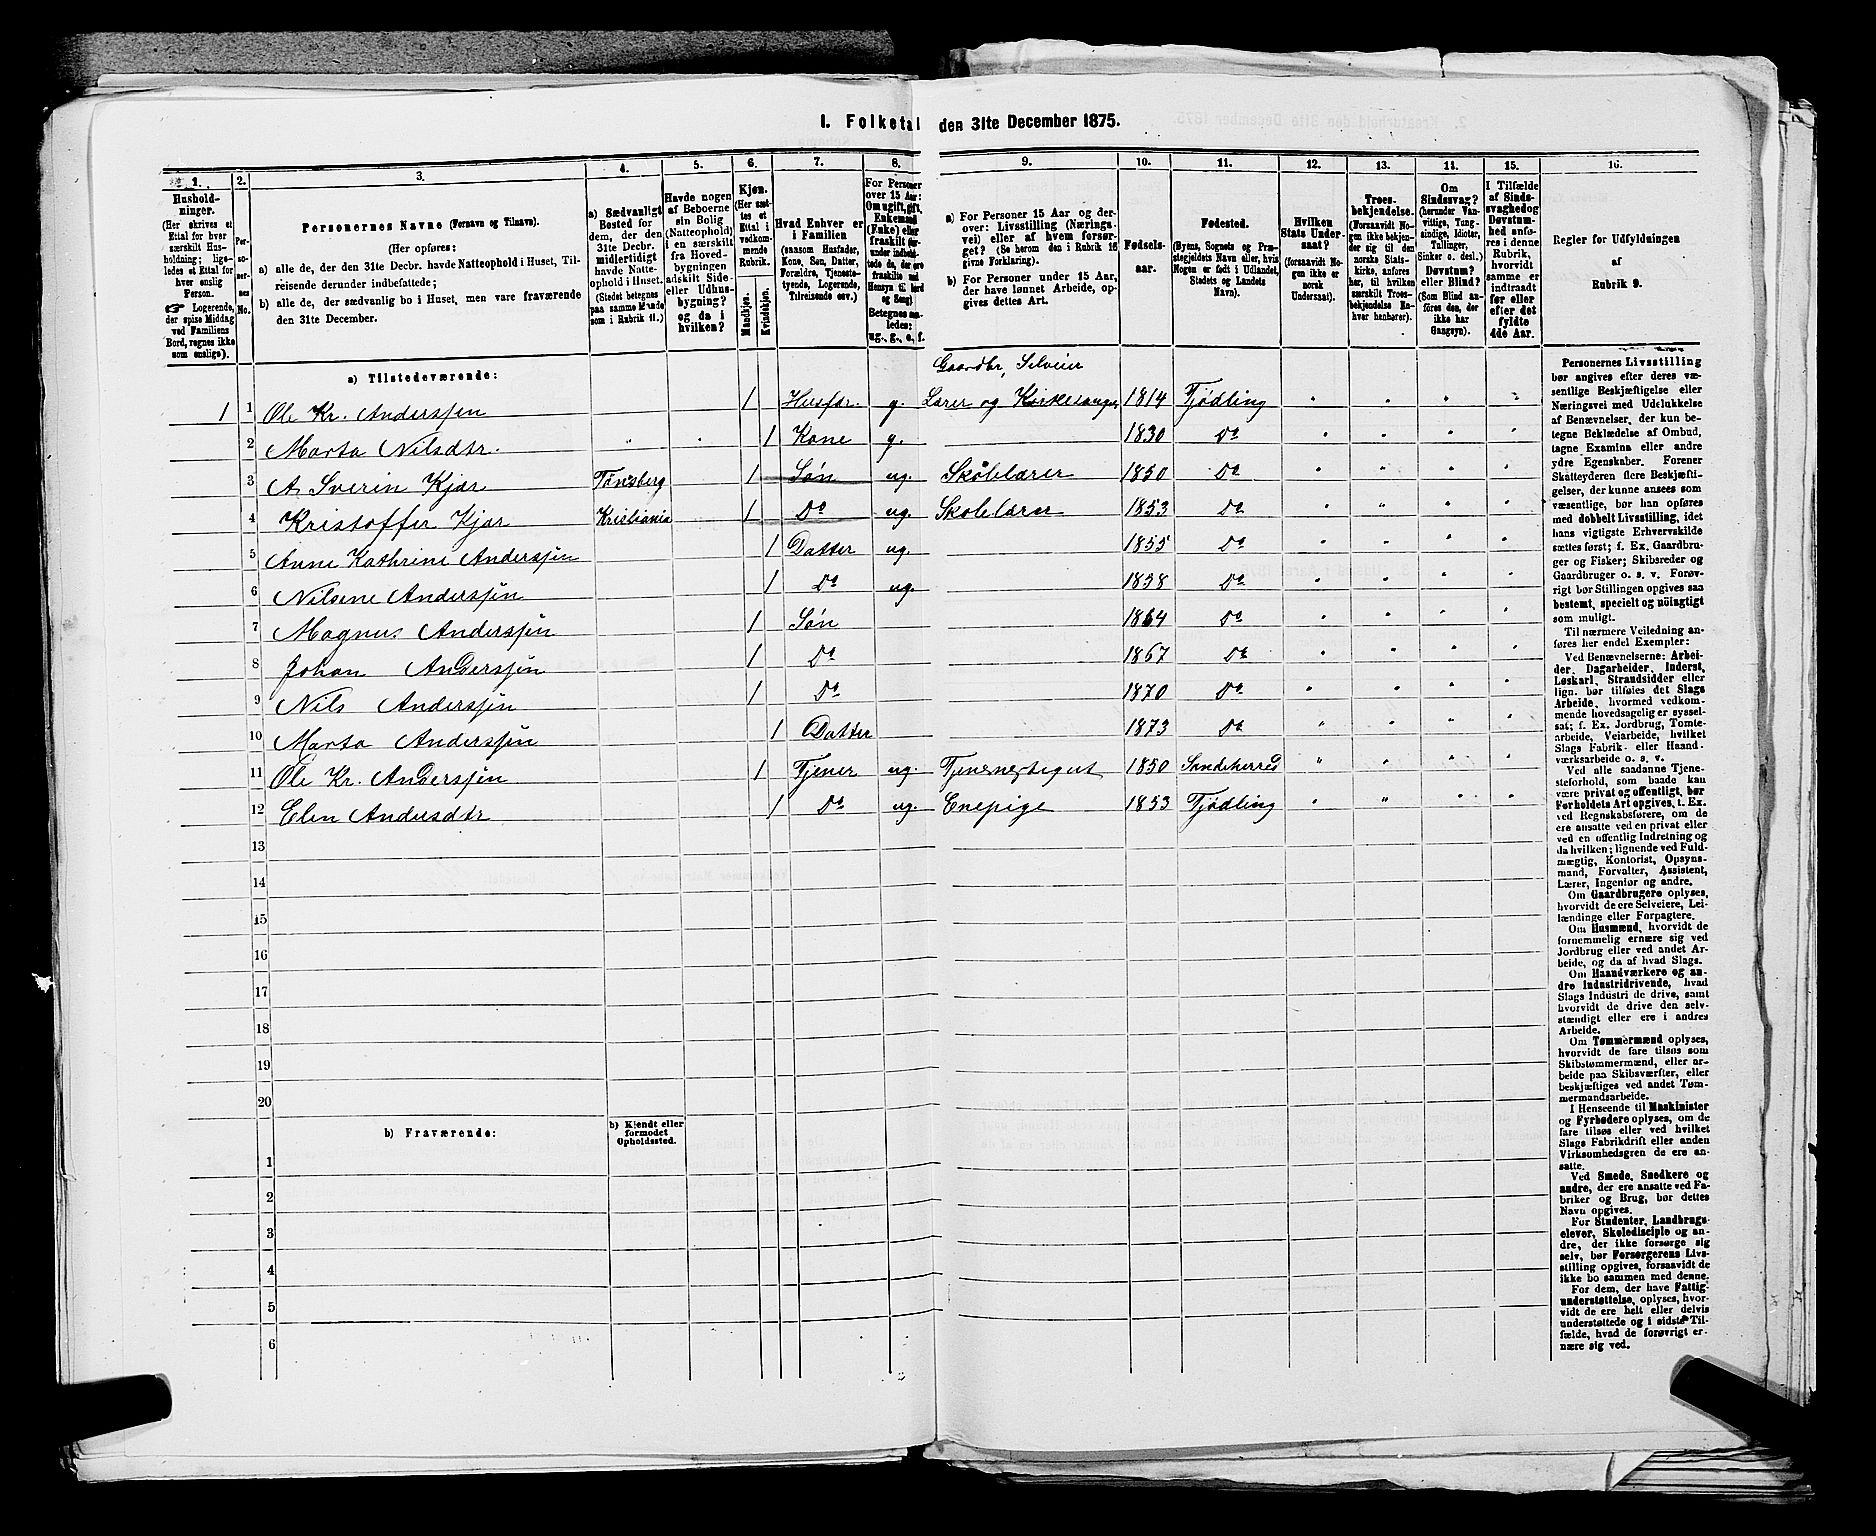 1. Folketal den 31te December 1875.
1. 2. 3. 4. 5. 6. 7. 8. 9. 10. 11. 12. 13. 14. 15. 16.
Hushold-
ninger.
(Her skrives et
Ettal for hver
særskilt Hus-
holdning; lige-
ledes et Ettal for
hver enslig
Person.
☞ Logerende,
der spise Middag
ved Familiens
Bord, regnes ikke
som enslige).
Per-
so-
ner-
nes
No.
Personernes Navne (Fornavn og Tilnavn).
(Her opføres:
a) alle de, der den 31te Decbr. havde Natteophold i Huset, Til-
reisende derunder indbefattede;
b) alle de, der sædvanlig bo i Huset, men vare fraværende
den 31te December.
a) Sædvanligt
Bosted for
dem, der den
31te Decbr.
midlertidigt
havde Natte-
ophold i Huset.
(Stedet betegnes
paa samme Maade
som i Rubrik 11.)
Havde nogen
af Beboerne
sin Bolig
(Natteophold)
i en særskilt
fra Hoved-
bygningen
adskilt Side-
eller Udhus-
bygning?
og da i
hvilken?
Kjøn.
(Her sæt-
tes et
Ettal i
vedkom-
mende
Rubrik.
Mandkjøn.
Kvindekjøn.
Hvad Enhver er
i Familien
(saasom Husfader,
Kone, Søn, Datter,
Forældre, Tjeneste-
tyende, Logerende,
Tilreisende osv.)
For Personer
over 15 Aar:
Om ugift, gift,
Enkemand
(Enke) eller
fraskilt
Betegnes saa-
ledes:
ug., g., e., f.
a) For Personer 15 Aar og der-
over: Livsstilling (Nærings-
vei) eller af hvem forsør-
get? (Se herom den i Rubrik 16
givne Forklaring).
b) For Personer under 15 Aar,
der have lønnet Arbeide, op-
gives dettes Art.
Fødsels-
aar.
Fødested.
(Byens, Sognets og Præ-
stegjeldets Navn eller, hvis
Nogen er født i Udlandet,
Stedets og Landets
Navn).
Hvilken
Stats Under-
saat?
(forsaavidt No-
gen ikke er
norsk
Undersaat).
Troes-
bekjendelse.
(Forsaavidt No-
gen ikke bekjen-
der sig til den
norske Stats-
kirke, anføres
her, til hvilken
særskilt Troes-
bekjendelse En-
hver henhører).
Om
Sindssvag?
(herunder Van-
vittige, Tung-
sindige, Idioter,
Tullinger,
Sinker o. desl.)
Døvstum?
eller Blind?
(Som Blind an-
føres den, der
ikke har
Gangsyn).
I Tilfælde
af Sinds-
svaghed og
Døvstum-
hed anfø-
res i denne
Rubrik,
hvorvidt
samme er
indtraadt
før eller
efter det
fyldte
4de Aar.
Regler for Udfyldningen
af
Rubrik 9.
a) Tilstedeværende:
Gaardbr, Selveier
1 1 Ole Kr. Anderssen 1 Husfar. g. Lærer og Kirkesanger 1814 Tjødling
2 Marta Nilsdtr. 1 Kone g. 1830 Do
3 A. Sverin Kjær Tønsberg 1 Søn ug. Skolelærer 1850 Do
4 Kristoffer Kjær Kristiania 1 Do ug. Skolelærer 1853 Do
5 Anne Kathrine Anderssen 1 Datter ug. 1855 Do
6 Nilsine Anderssen 1 Do ug. 1858 Do
7 Magnus Anderssen 1 Søn 1864 Do
8 Johan Anderssen 1 Do 1867 Do
9 Nils Anderssen 1 Do 1870 Do
10 Marta Anderssen 1 Datter 1873 Do
11 Ole Kr. Anderssen 1 Tjener ug. Tjenestegut 1850 Sandeherred
12 Elen Andersdtr 1 Do ug. Enepige 1853 Tjødling
13
14
15
16
17
18
19
20
b) Fraværende:
b) Kjendt eller
formodet
Opholdssted.
1
2
3
4
5
6
Personernes Livsstilling
bør angives efter deres væ-
sentlige Beskjæftigelse eller
Næringsvei med Udelukkelse
af Benævnelser, der kun be-
tegne Beklædelse af Ombud,
tagne Examina eller andre
ydre Egenskaber. Forener
Skatteyderen flere Beskjæfti-
gelser, der kunne ansees som
væsentlige, bør han opføres
med dobbelt Livsstilling, idet
hans vigtigste Erhvervskilde
sættes først; f. Ex. Gaardbru-
ger og Fisker; Skibsreder og
Gaardbruger o. s. v. Forøv-
rigt bør Stillingen opgives saa
bestemt, specielt og nöiagtigt
som muligt.
Til nærmere Veiledning an-
føres her endel Exempler:
Ved Benævnelserne: Arbei-
der, Dagarbeider, Inderst,
Løskarl, Strandsidder eller
lign. bør tilføies det Slags
Arbeide, hvormed vedkom-
mende hovedsagelig er syssel-
sat; f. Ex. Jordbrug, Tomte-
arbeide, Veiarbeide, hvilket
Slags Fabrik- eller Haand-
værksarbeide o. s. v.
Ved alle saadanne Tjene-
steforhold, som baade kan
være privat og offentligt, bør
Forholdets Art opgives, t. Ex.
ved Regnskabsførere, om de
ere ansatte ved en privat eller
ved en offentlig Indretning og
da hvilken; lignende ved Fuld-
mægtig, Kontorist, Opsyns-
mand, Forvalter, Assistent,
Lærer, Ingeniør og andre.
Om Gaardbrugere oplyses,
hvorvidt de ere Selveiere, Lei-
lændinge eller Forpagtere.
Om Husmænd, hvorvidt de
fornemmelig ernære sig ved
Jordbrug eller ved andet Ar-
beide, og da af hvad Slags.
Om Haandværkere og an-
dre Industridrivende, hvad
Slags Industri de drive, samt
hvorvidt de drive den selv-
stændigt eller ere i andres
Arbeide.
Om Tømmermænd oplyses,
hvorvidt de fare tilsøs som
Skibstømmermænd, eller ar-
beide paa Skibsværfter, eller
beskjæftiges ved andet Tøm-
mermandsarbeide.
I Henseende til Maskinister
og Fyrbødere oplyses, om de
fare tilsøs eller ved hvilket
Slags Fabrikdrift eller anden
Virksomhedsgren de ere an-
satte.
Ved Smede, Snedkere og
andre, der ere ansatte ved Fa-
briker og Brug, bør dettes
Navn opgives.
For Studenter, Landbrugs-
elever, Skoledisciple og an-
dre, der ikke forsørge sig
selv, bør Forsørgerens Livs-
stilling opgives, forsaavidt de
ikke bo sammen med denne.
For dem, der have Fattig-
understøttelse, oplyses, hvor-
vidt de ere helt eller delvis
understøttede og i sidste Til-
fælde, hvad de forøvrigt er-
nære sig ved.